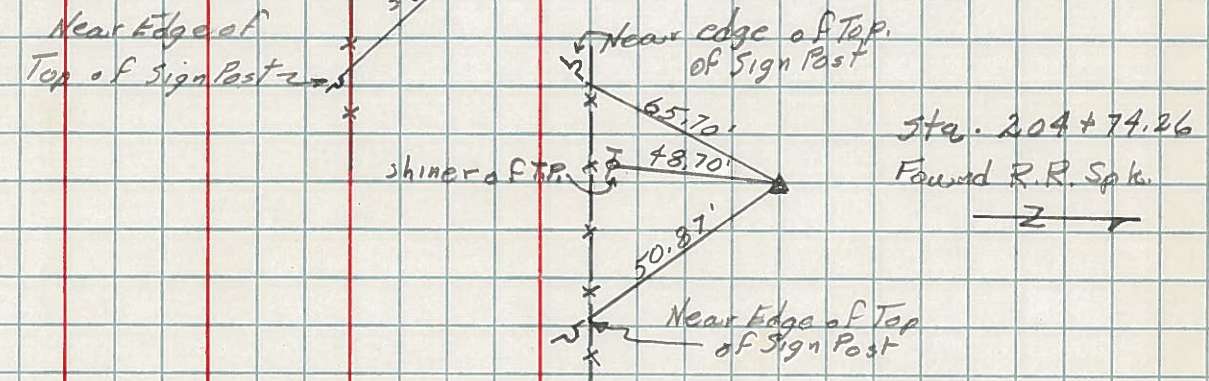 Near Edge of
Top of Sign Post
Near edge of Top.
of Sign Post
65.70'
48.70'
shiner of T.P.
50.87'
Near Edge of Top
of Sign Post
Sta. 204+74.26
Found R.R. Spk.